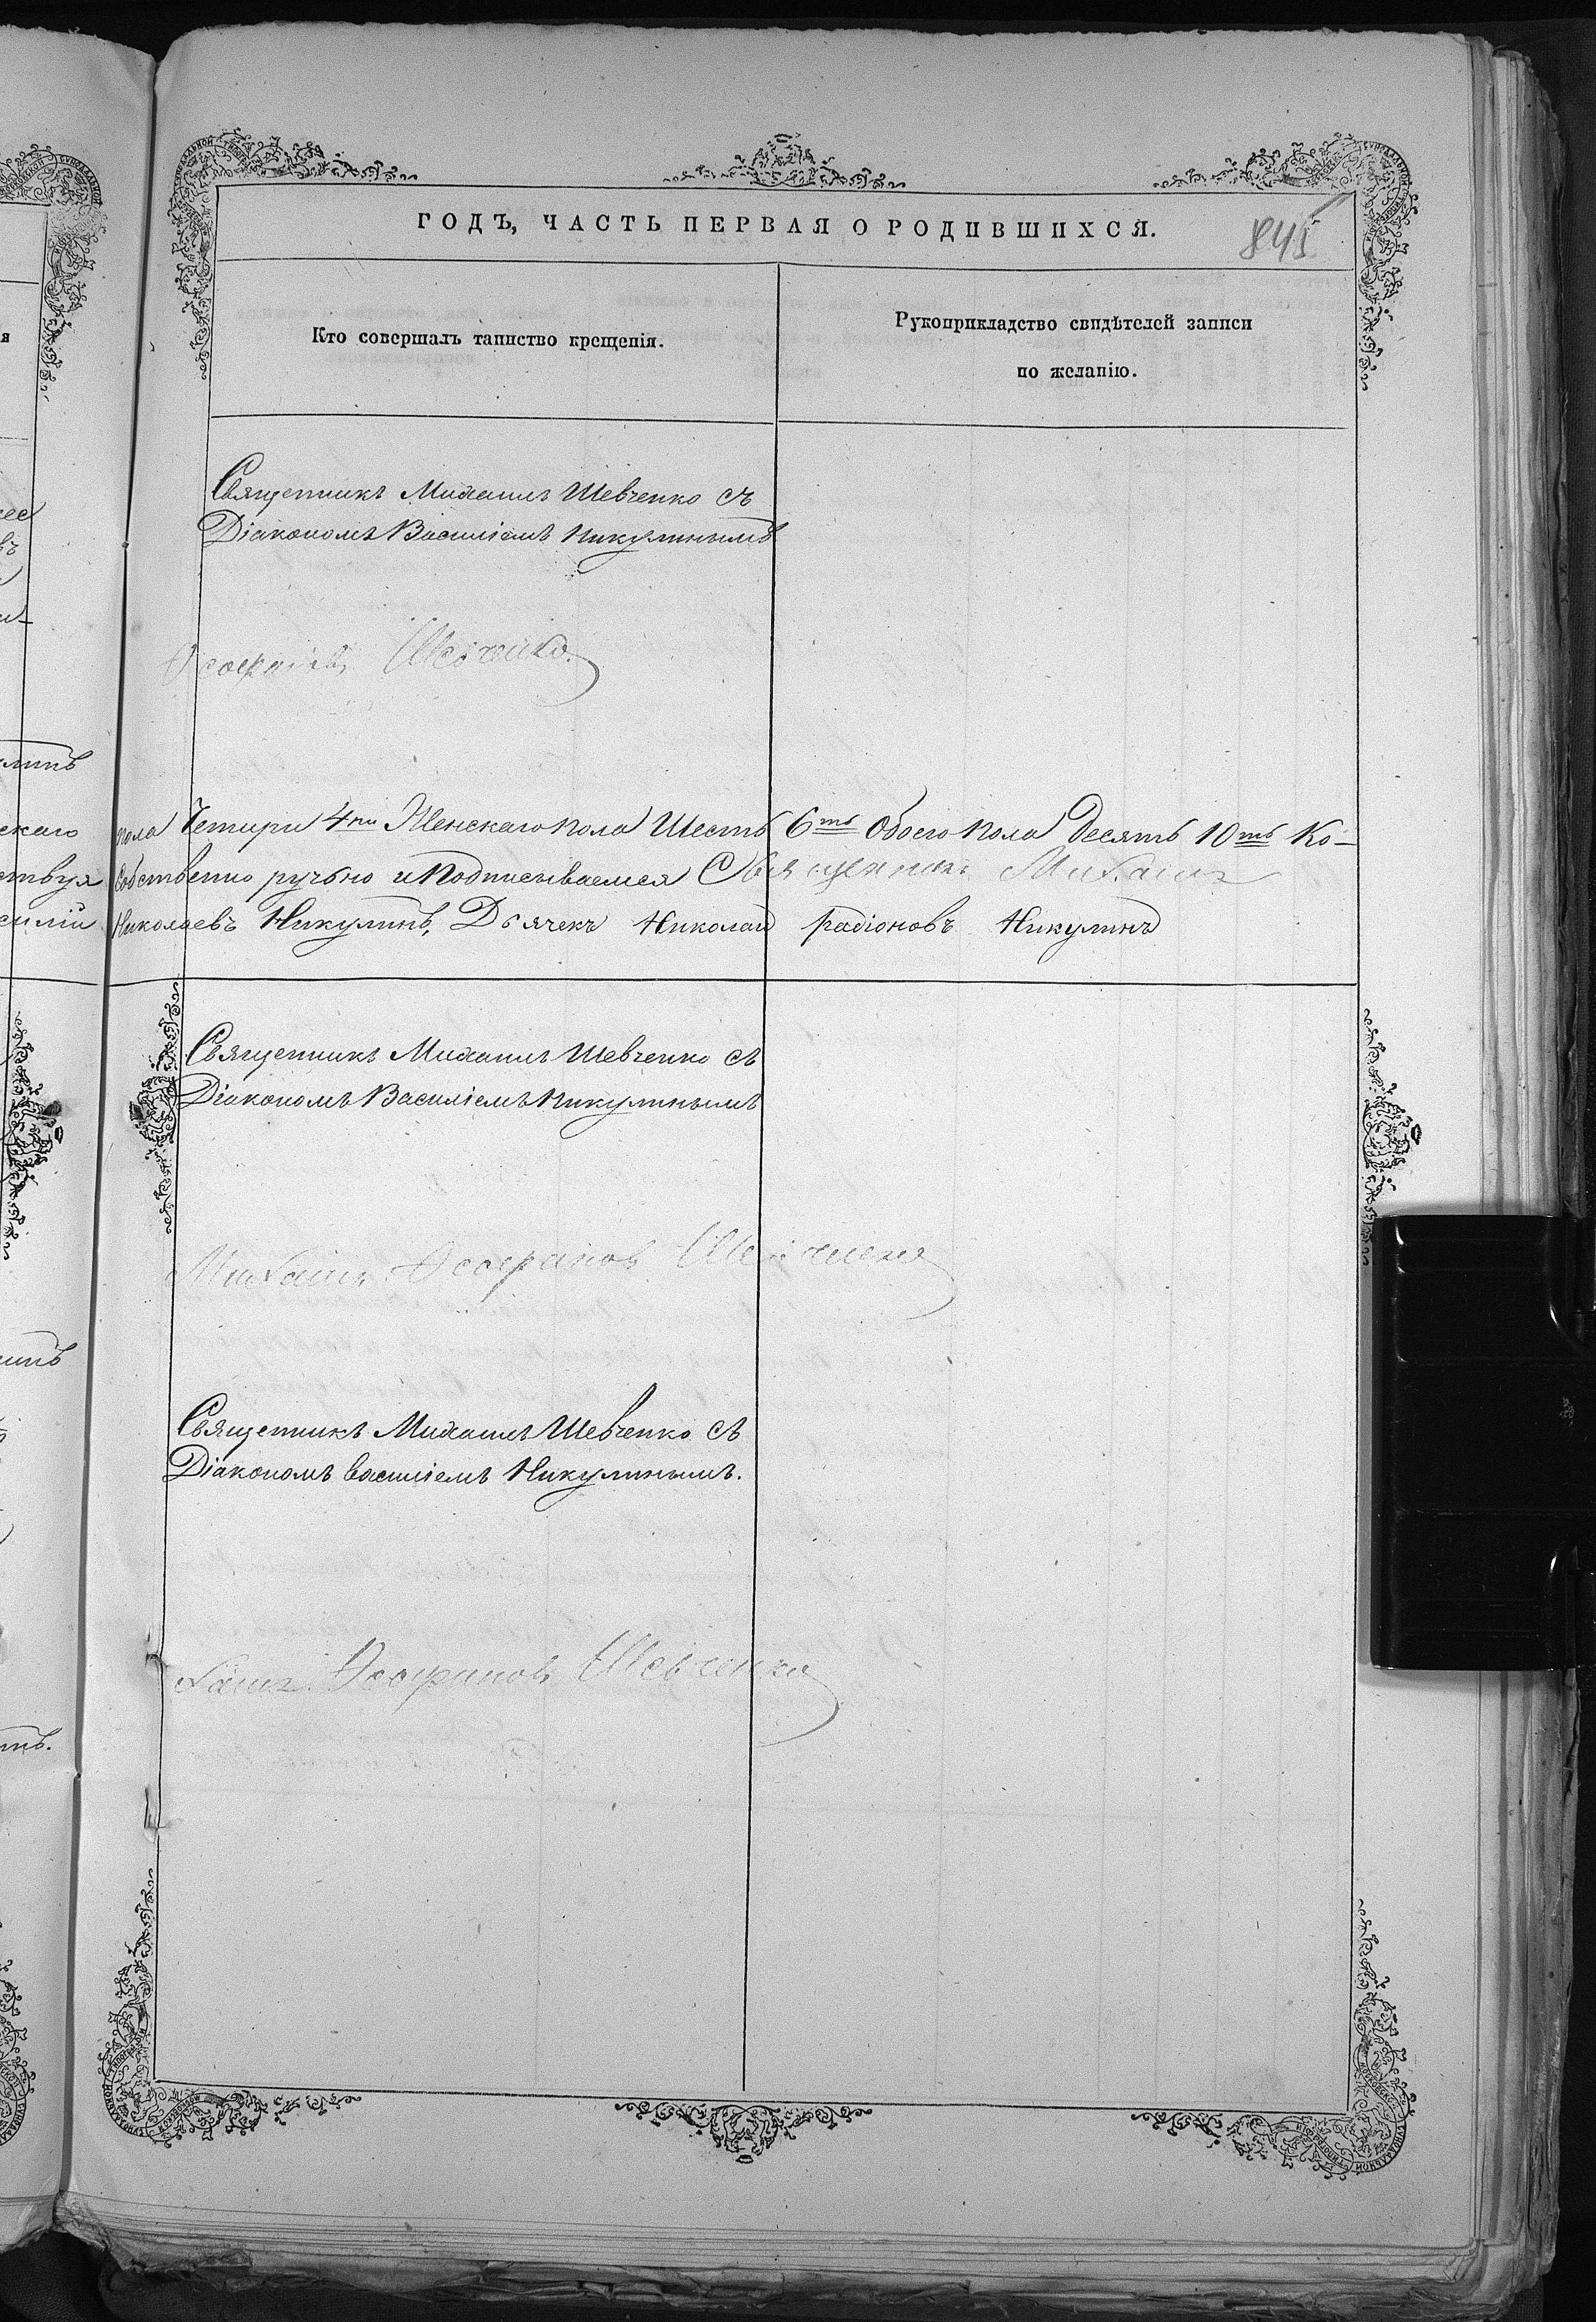 ГОДЪ, ЧАСТЬ ПЕРВАЯ О РОДИВШИХСЯ.
845
Кто совершалъ таинство крещенія.
Рукоприкладство свидѣтелей записи
по желанію.
Священникъ Михаилъ Шевченко съ
Діакономъ Василіемъ Никулинымъ
Шевченко.
пола Четыри 4ри Женскаго пола Шесть 6ть Обоего пола Десять 10ть Ко-
Собственно ручьно и Подписываемся Священникъ Михаилъ
Николаевъ Никулинъ, Дьячекъ Николай радіоновъ Никулинъ
Священникъ Михаилъ Шевченко съ
Діакономъ Василіемъ Никулинымъ
Михаилъ Шевченко
Священникъ Михаилъ Шевченко съ
Діакономъ василіемъ Никулинымъ.
хаилъ Шевченко